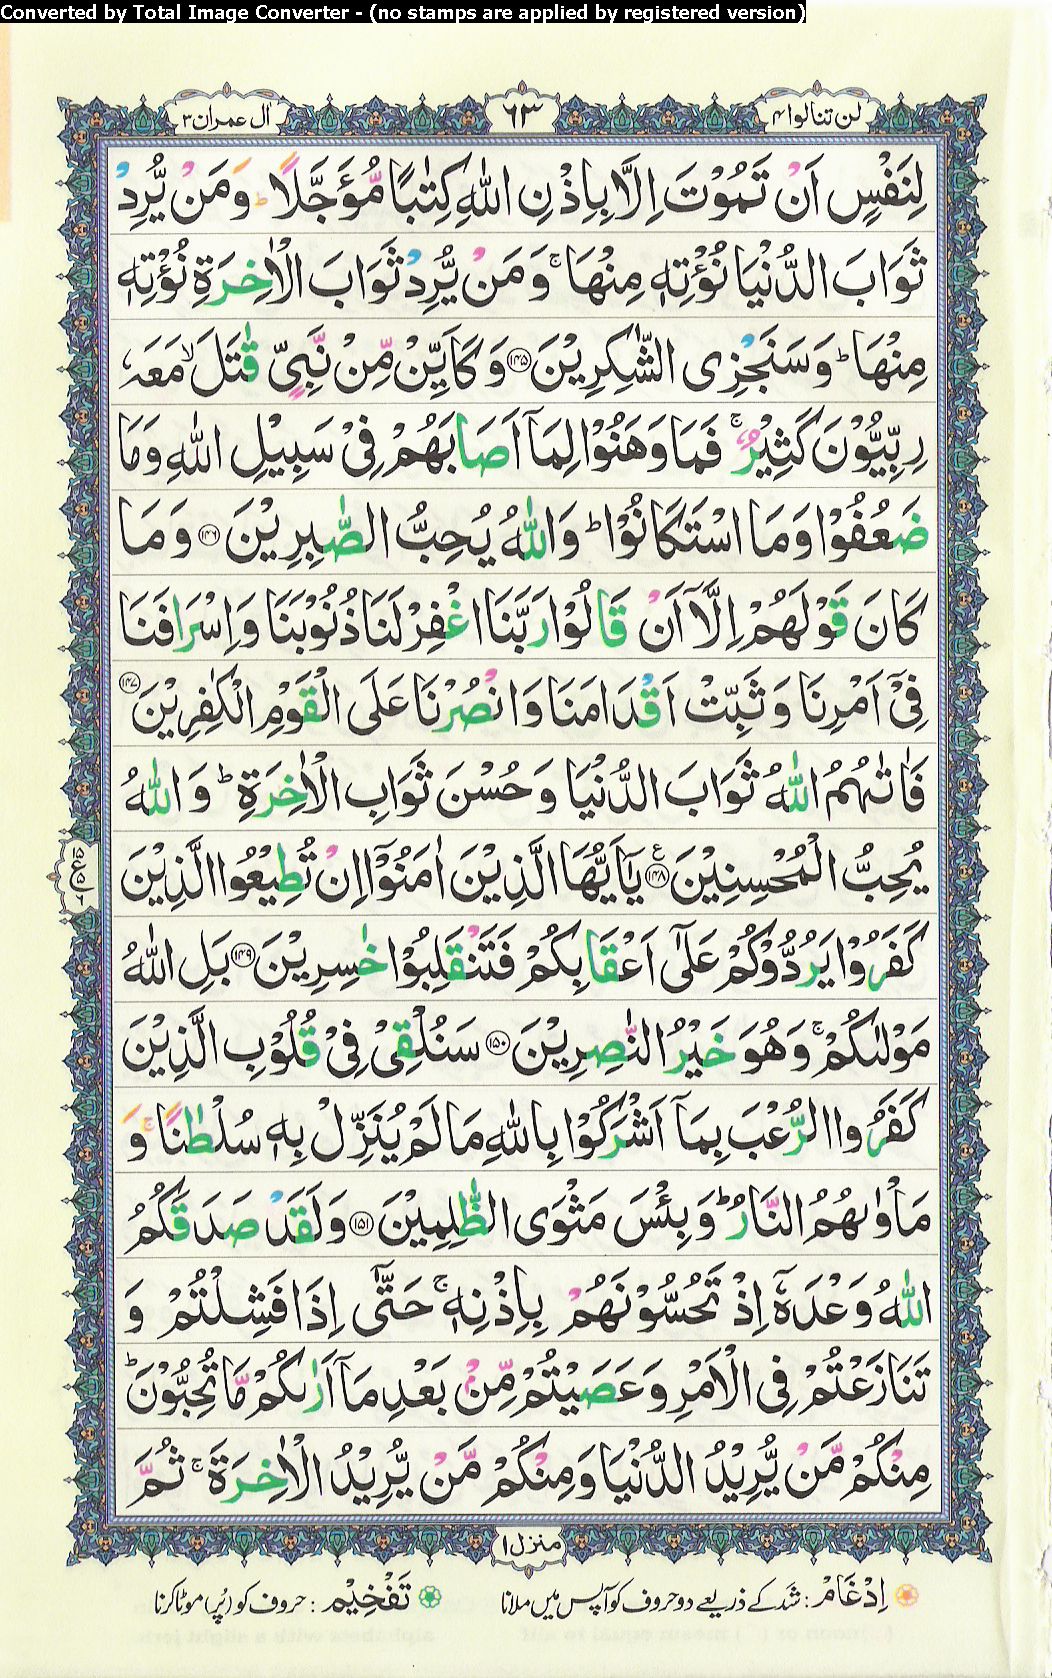 Converted by Total Image Converter - (no stamps are applied by registered version)
لن تنالوا ۴
۶۳
اٰل عمران ۳
لِنَفْسٍ اَنْ تَمُوْتَ اِلَّا بِاِذْنِ اللّٰهِ كِتٰبًا مُّؤَجَّلًا ؕ وَمَنْ يُّرِدْ
ثَوَابَ الدُّنْيَا نُؤْتِهٖ مِنْهَا ۚ وَمَنْ يُّرِدْ ثَوَابَ الْاٰخِرَةِ نُؤْتِهٖ
مِنْهَا ؕ وَسَنَجْزِى الشّٰكِرِيْنَ ﴿۱۴۵﴾ وَكَاَيِّنْ مِّنْ نَّبِىٍّ قٰتَلَ ۙ مَعَهٗ
رِبِّيُّوْنَ كَثِيْرٌ ۚ فَمَا وَهَنُوْا لِمَآ اَصَابَهُمْ فِىْ سَبِيْلِ اللّٰهِ وَمَا
ضَعُفُوْا وَمَا اسْتَكَانُوْا ؕ وَاللّٰهُ يُحِبُّ الصّٰبِرِيْنَ ﴿۱۴۶﴾ وَمَا
كَانَ قَوْلَهُمْ اِلَّآ اَنْ قَالُوْا رَبَّنَا اغْفِرْ لَنَا ذُنُوْبَنَا وَاِسْرَافَنَا
فِىْٓ اَمْرِنَا وَثَبِّتْ اَقْدَامَنَا وَانْصُرْنَا عَلَى الْقَوْمِ الْكٰفِرِيْنَ ﴿۱۴۷﴾
فَاٰتٰىهُمُ اللّٰهُ ثَوَابَ الدُّنْيَا وَحُسْنَ ثَوَابِ الْاٰخِرَةِ ؕ وَاللّٰهُ
يُحِبُّ الْمُحْسِنِيْنَ ﴿۱۴۸﴾ ع يٰٓاَيُّهَا الَّذِيْنَ اٰمَنُوْٓا اِنْ تُطِيْعُوا الَّذِيْنَ
۱۵
ع ۵
۶
كَفَرُوْا يَرُدُّوْكُمْ عَلٰٓى اَعْقَابِكُمْ فَتَنْقَلِبُوْا خٰسِرِيْنَ ﴿۱۴۹﴾ بَلِ اللّٰهُ
مَوْلٰىكُمْ ۚ وَهُوَ خَيْرُ النّٰصِرِيْنَ ﴿۱۵۰﴾ سَنُلْقِىْ فِىْ قُلُوْبِ الَّذِيْنَ
كَفَرُوا الرُّعْبَ بِمَآ اَشْرَكُوْا بِاللّٰهِ مَا لَمْ يُنَزِّلْ بِهٖ سُلْطٰنًا ۚ وَ
مَاْوٰىهُمُ النَّارُ ؕ وَبِئْسَ مَثْوَى الظّٰلِمِيْنَ ﴿۱۵۱﴾ وَلَقَدْ صَدَقَكُمُ
اللّٰهُ وَعْدَهٗٓ اِذْ تَحُسُّوْنَهُمْ بِاِذْنِهٖ ۚ حَتّٰٓى اِذَا فَشِلْتُمْ وَ
تَنَازَعْتُمْ فِى الْاَمْرِ وَعَصَيْتُمْ مِّنْۢ بَعْدِ مَآ اَرٰىكُمْ مَّا تُحِبُّوْنَ ؕ
مِنْكُمْ مَّنْ يُّرِيْدُ الدُّنْيَا وَمِنْكُمْ مَّنْ يُّرِيْدُ الْاٰخِرَةَ ۚ ثُمَّ
منزل ۱
اِدْغَامْ : شد کے ذریعے دو حروف کو آپس میں ملانا
تَفْخِيْمْ : حروف کو (پُر) موٹا کرنا